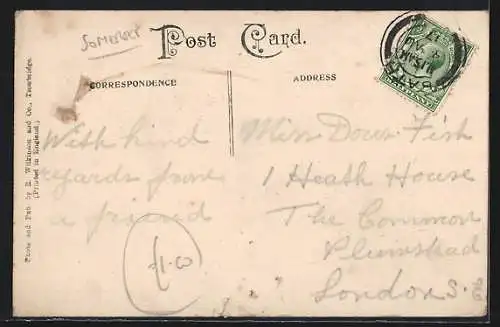 SOMERSET
Post Card.
CORRESPONDENCE
ADDRESS
With kind
regards from
a friend
Miss Doris Fish
1 Heath House
The Common
Plumstead
London S.E
£1-00
Photo and Pub by R. Wilkinson and Co., Trowbridge.
(Printed in England.)